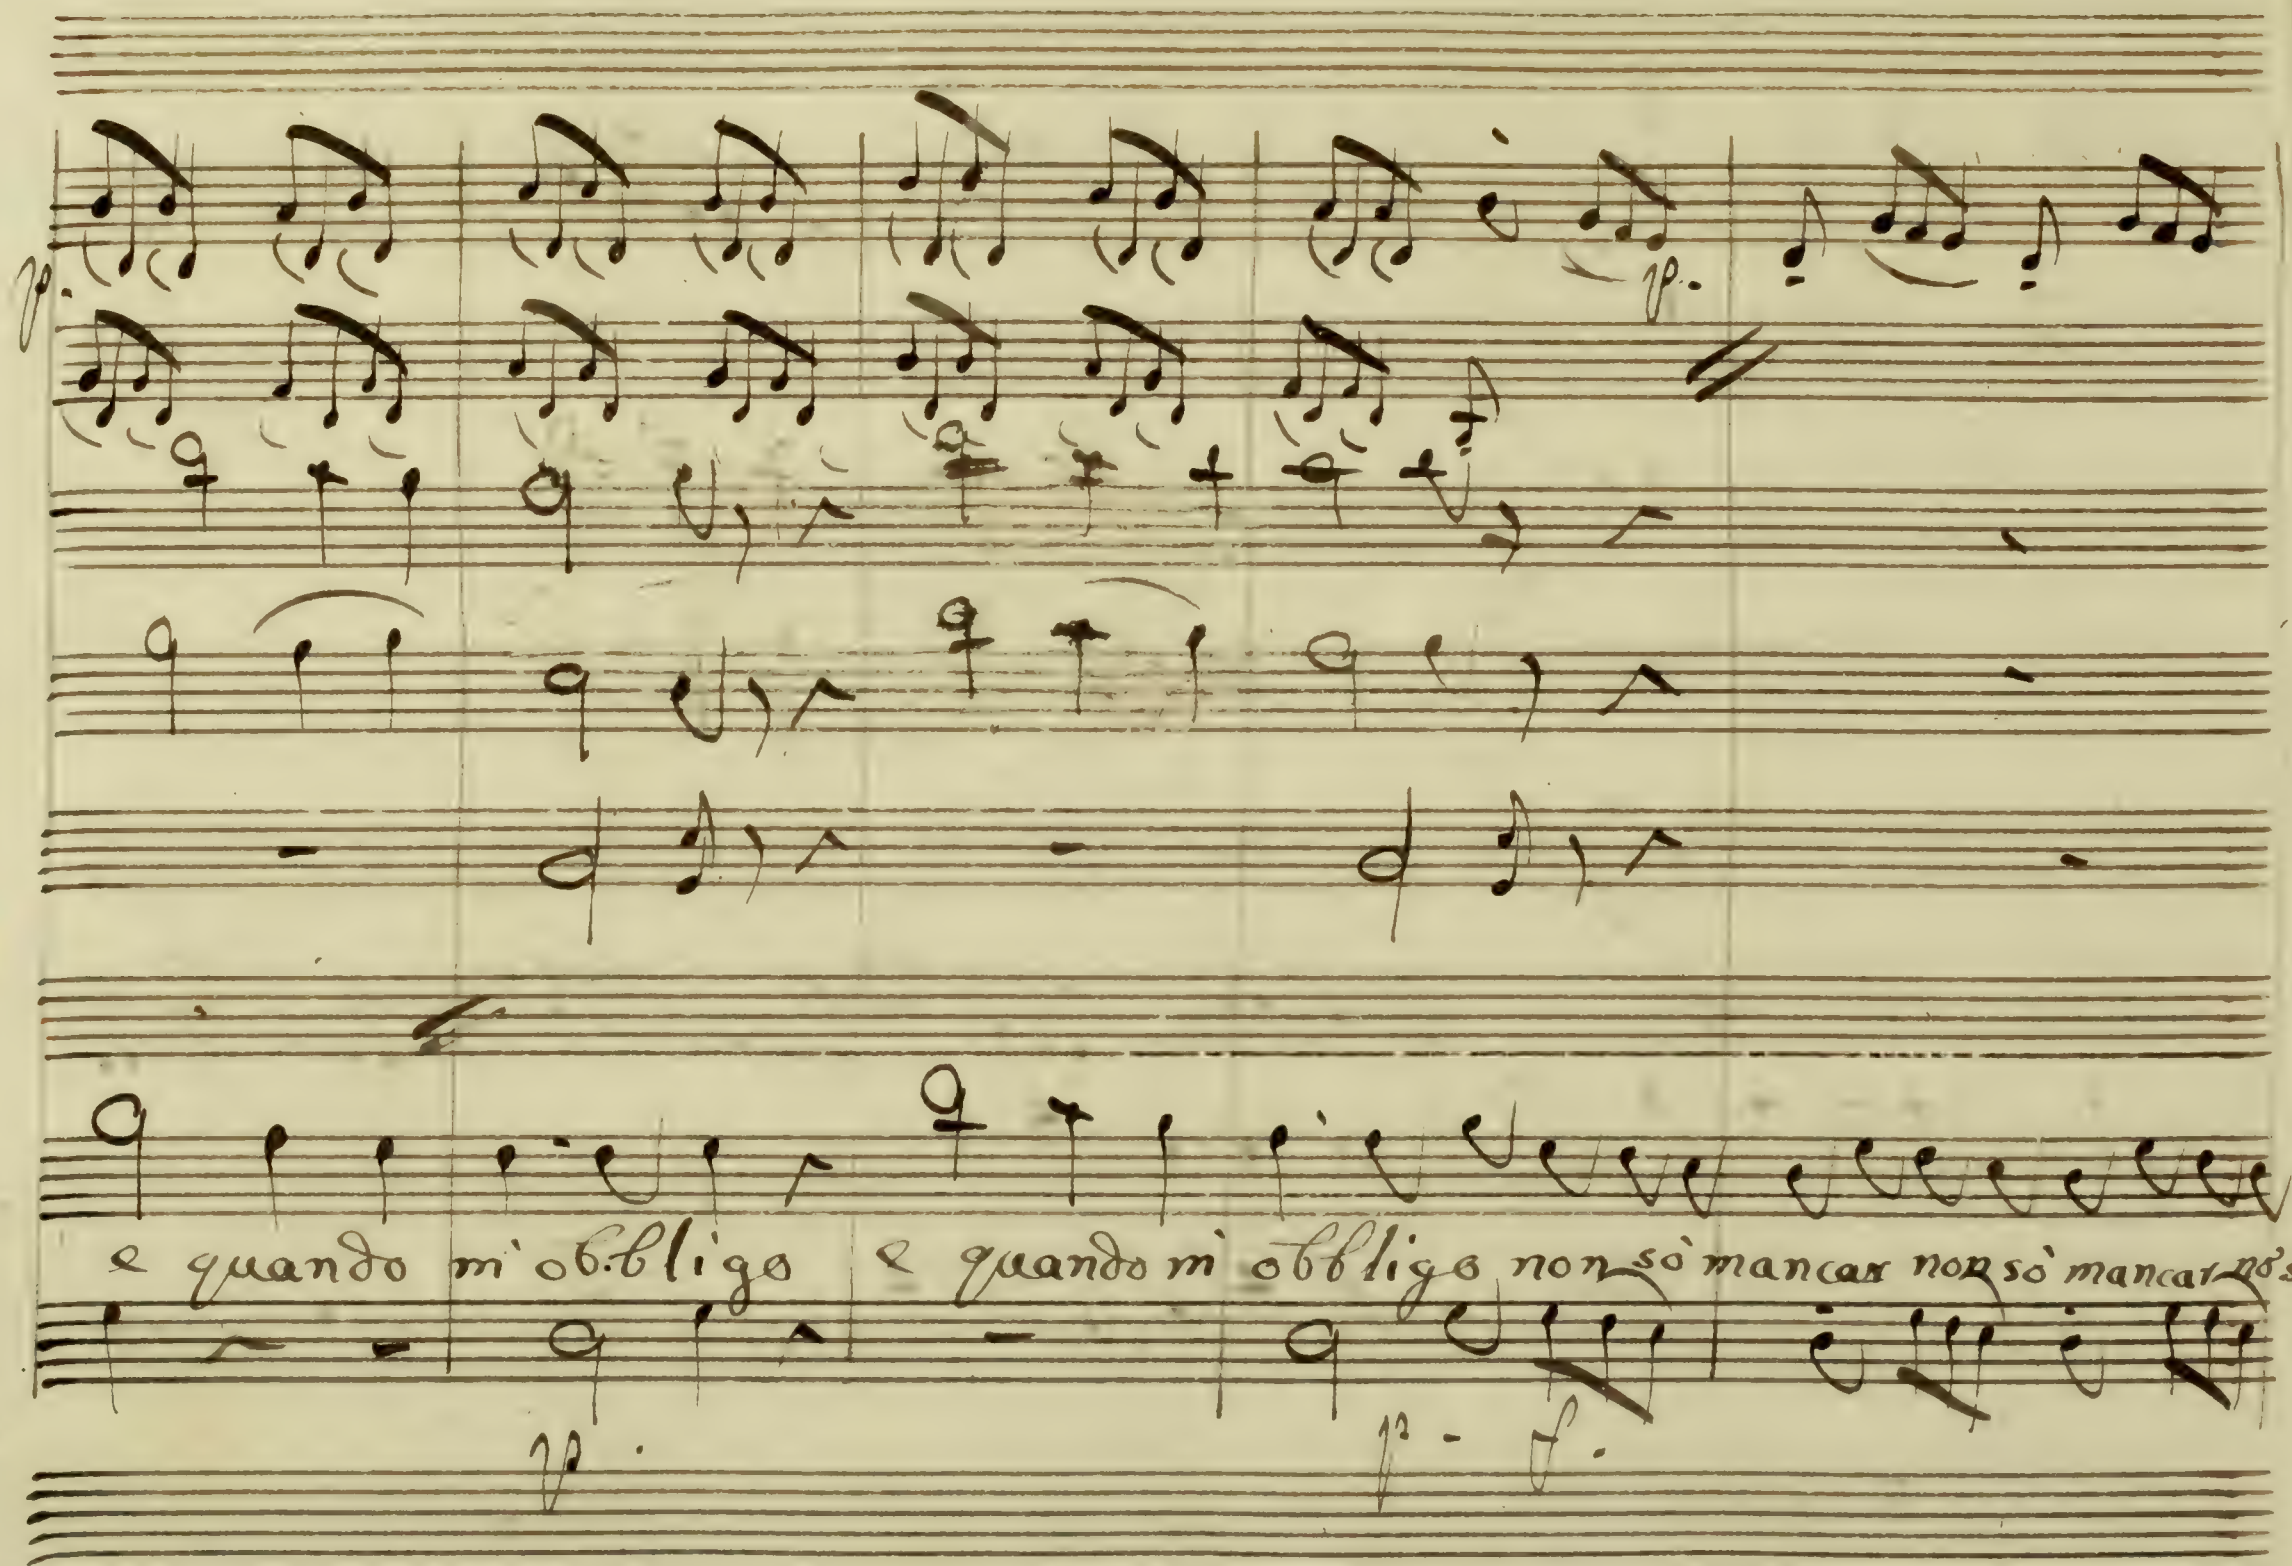 p.
p.
e quando m' obbligo e quando m' obbligo non sò mancar non sò mancar no' s
p.
p. f.